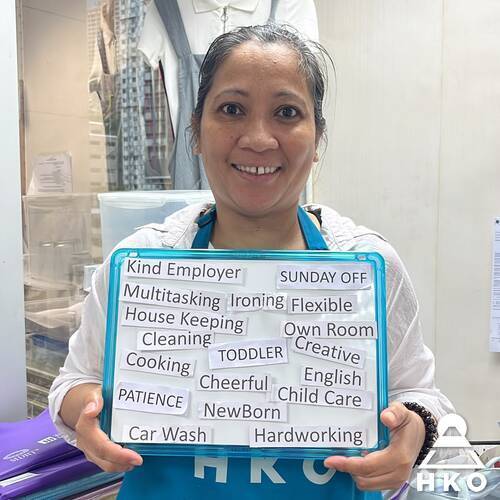 Kind Employer
SUNDAY OFF
Multitasking Ironing Flexible
House Keeping
Own Room
Cleaning
TODDLER
Creative
Cooking
English
Cheerful
Child Care
PATIENCE
NewBorn
Car Wash
Hardworking
HKO
HKO